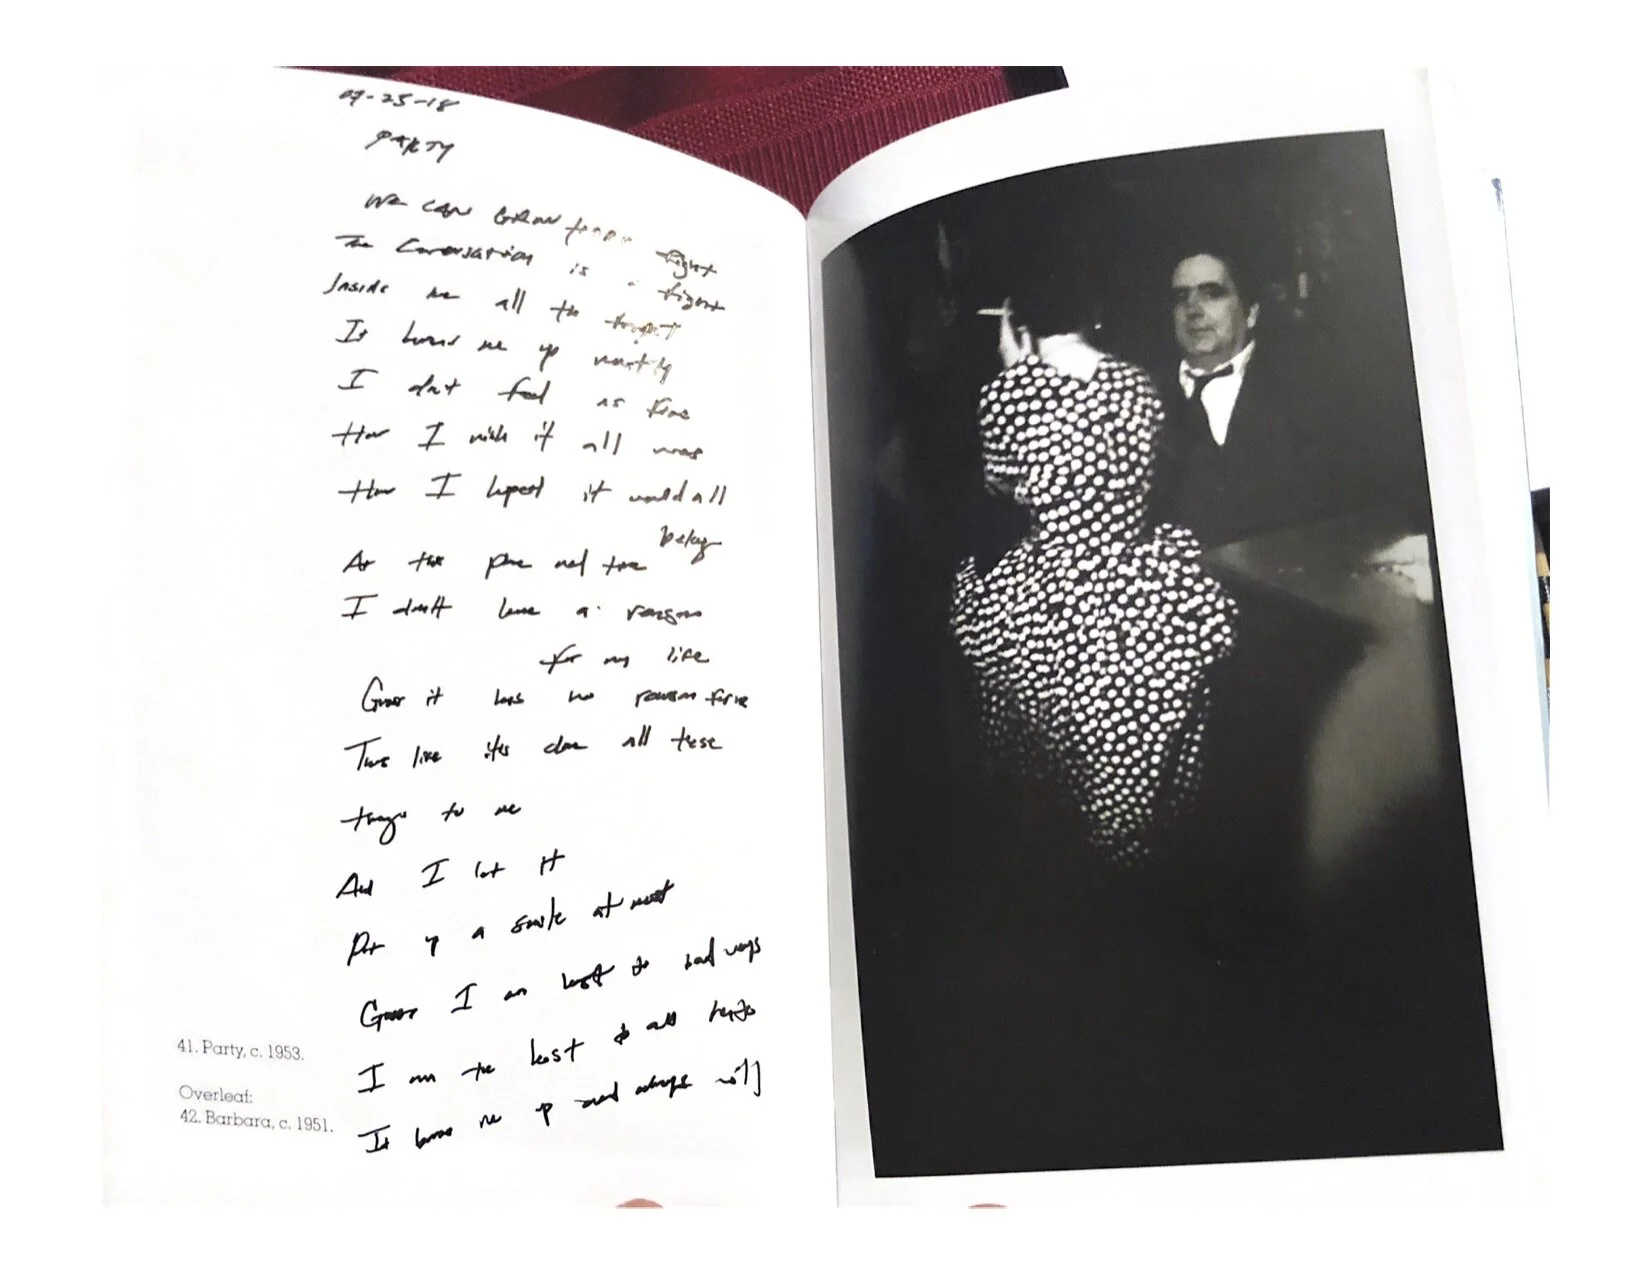 07-25-18
PARTY
We can grow
The Conversation is
Inside me all the
It burns me up
I don't feel as
How I wish it all was
How I hoped it would all
belong
At this place and time
I don't have a reason
for my life
Guess it has no reason
like all these
things to me
And I let it
Put up a smile at most
Guess I am lost to bad ways
I am the lost to all
It burns me up and always will
41. Party, c. 1953.
Overleaf:
42. Barbara, c. 1951.